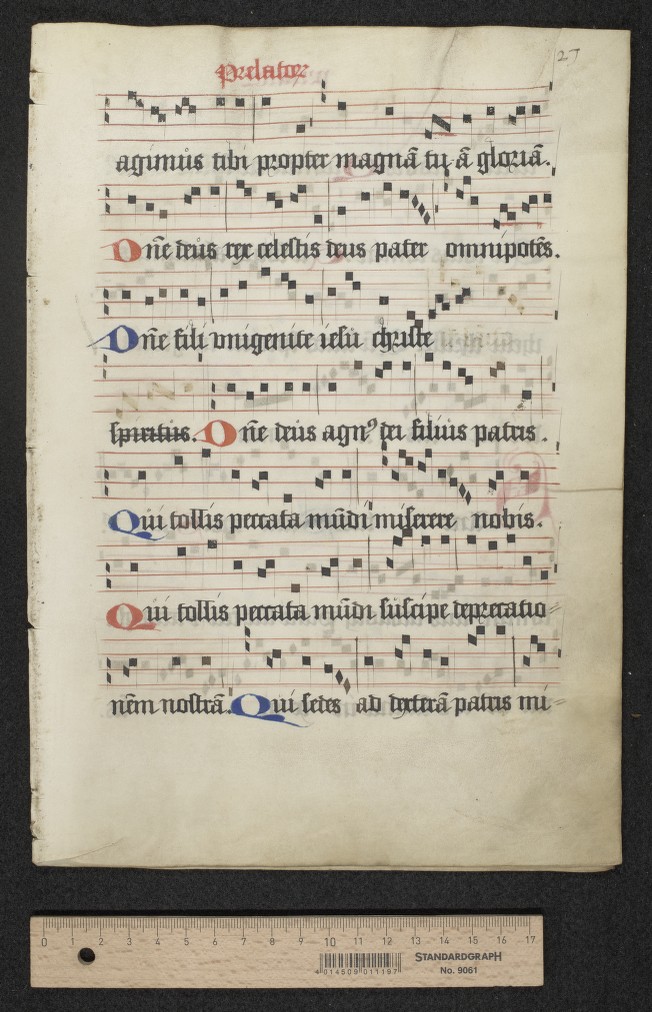 27
prelator
agimus tibi propter magnā tu ā gloriā.
Dn̄e deus rex celestis deus pater omnipotēs.
Dn̄e fili vnigenite iesu christe
spiritus. Dn̄e deus agnꝰ dei filius patris.
Qui tollis peccata mūdi miserere nobis.
Qui tollis peccata mūdi suscipe deprecatio=
nēm nostrā. Qui sedes ad dexterā patris mi=
0 1 2 3 4 5 6 7 8 9 10 11 12 13 14 15 16 17
4 014509 011197
STANDARDGRAPH
No. 9061